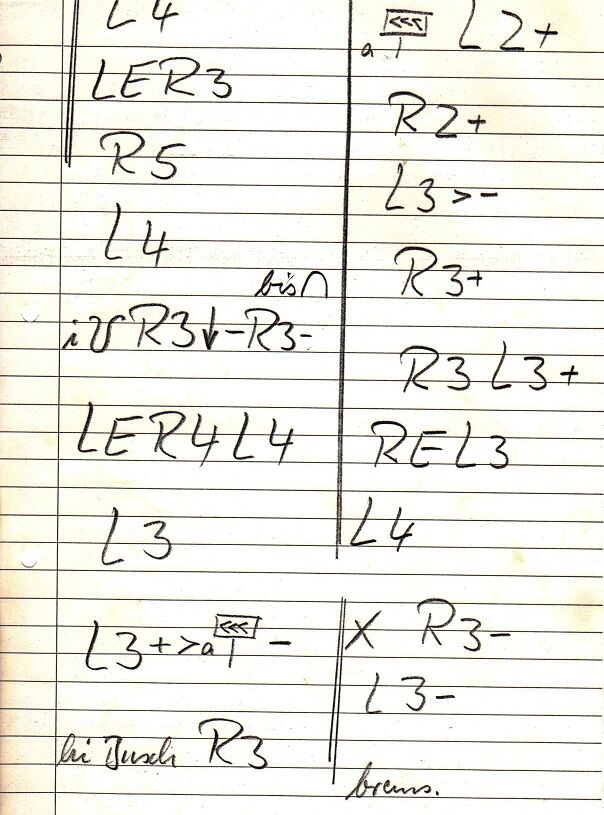 L4
LER3
R5
L4
bis ∩
R3↓-R3-
LER4L4
L3
L3+>a <<< -
Busch R3
a <<< L2+
R2+
L3>-
R3+
R3 L3+
REL3
L4
X R3-
L3-
brems.